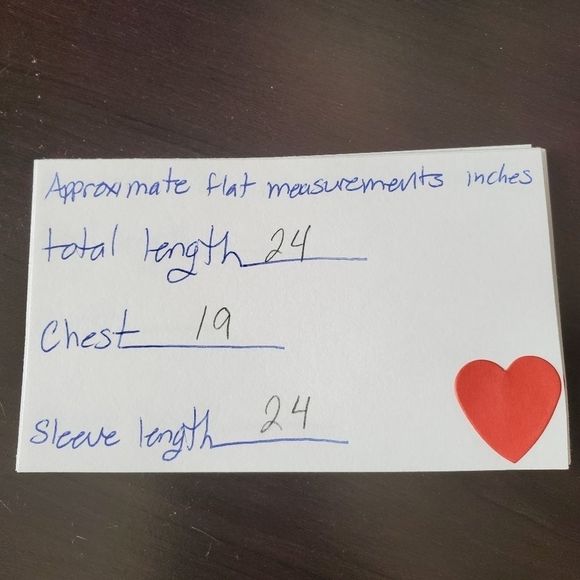 Approximate flat measurements inches
total length 24
Chest 19
Sleeve length 24